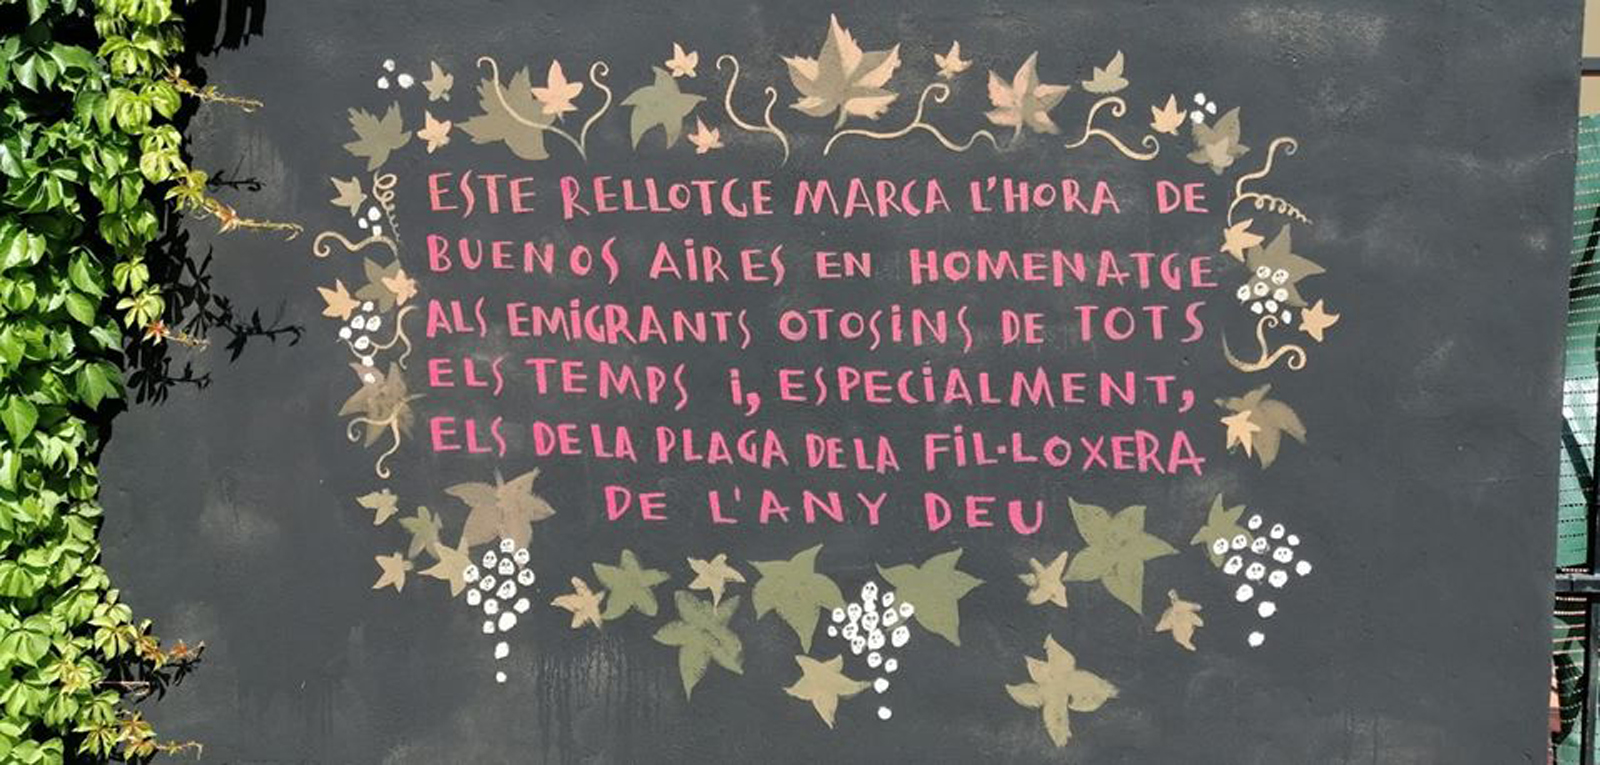 ESTE RELLOTGE MARCA L'HORA DE
BUENOS AIRES EN HOMENATGE
ALS EMIGRANTS OTOSINS DE TOTS
ELS TEMPS i, ESPECIALMENT,
ELS DE LA PLAGA DE LA FIL·LOXERA
DE L'ANY DEU